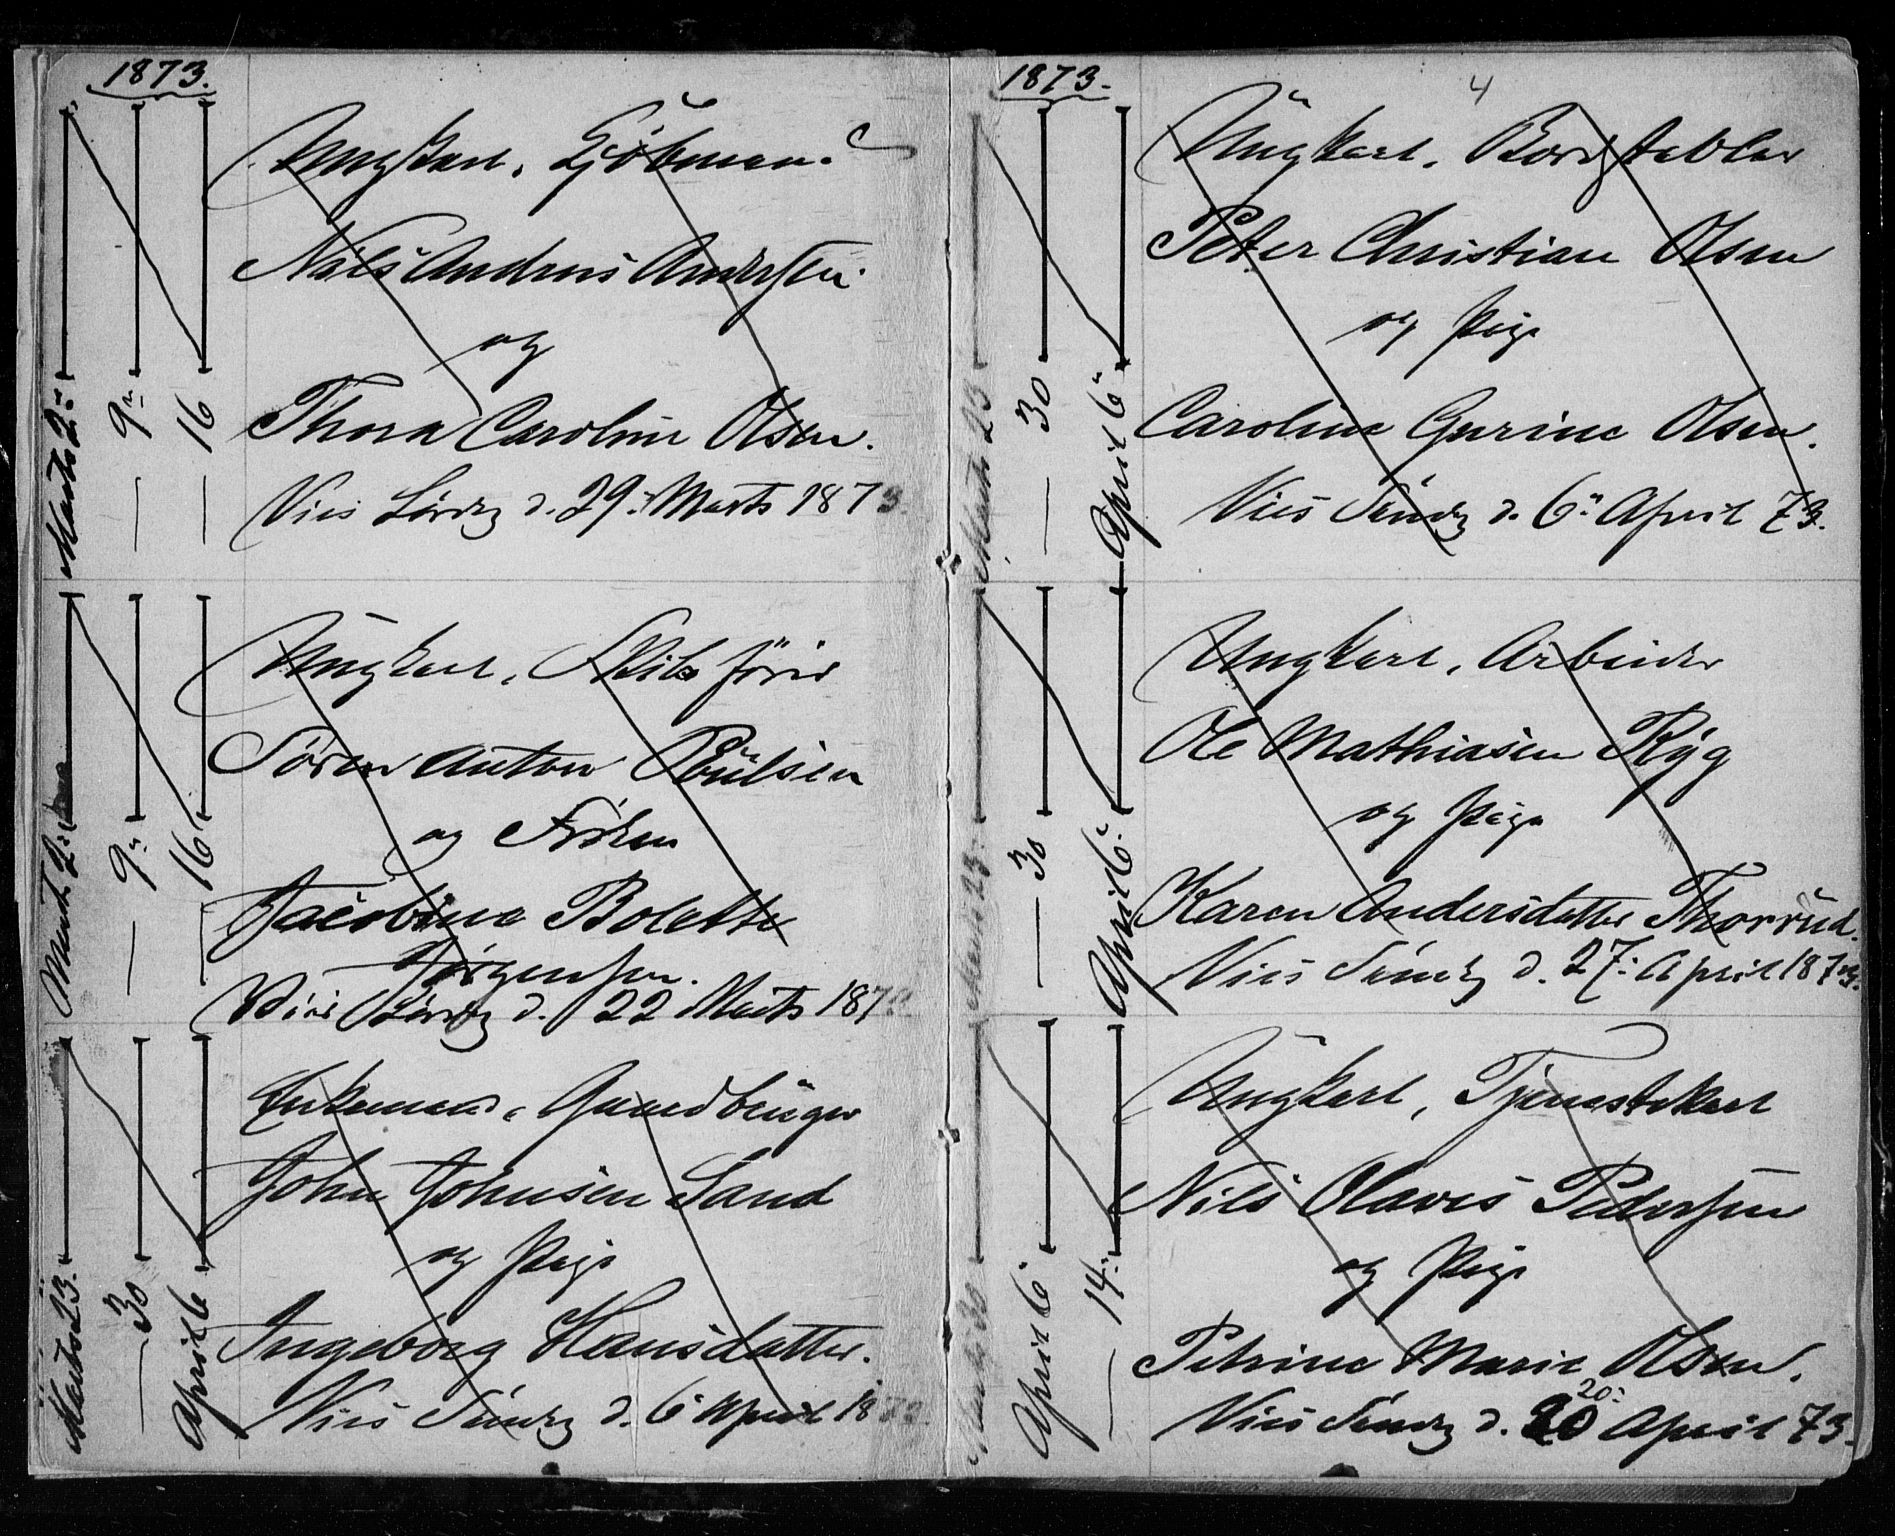 1873.
Marts 2.
— 9
— 16
Ungkarl, Sjömand
Nils Andreas Andersen
og
Thora Caroline Olsen.
Vies Lørdag d. 29. Marts 1873.
Marts 2.
— 9
— 16
Ungkarl, Skibsförer
Sören Anton Poulsen
og Frøken
Jacobine Bolette
Jørgensen.
Vies Lørdag d. 22 Marts 1873
Marts 23.
— 30
April 6
Enkemand, Gaardbruger
John Johnsen Sand
og Pige
Ingeborg Hansdatter.
Vies Söndag d. 6 April 1873
1873.
4
Marts 23
— 30
April 6
Ungkarl, Bordstabler
Peter Christian Olsen
og Pige
Caroline Gurine Olsen.
Vies Söndag d. 6 April 73.
Marts 23.
— 30
April 6.
Ungkarl, Arbeider
Ole Mathiasen Ryg
og Pige
Karen Andersdatter Thorrud.
Vies Söndag d. 27. April 1873.
Marts 30
April 6
— 14.
Ungkarl, Tjenestekarl
Nils Olaves Pedersen
og Pige
Petrine Marie Olsen.
20.
Vies Söndag d. 20 April 73.